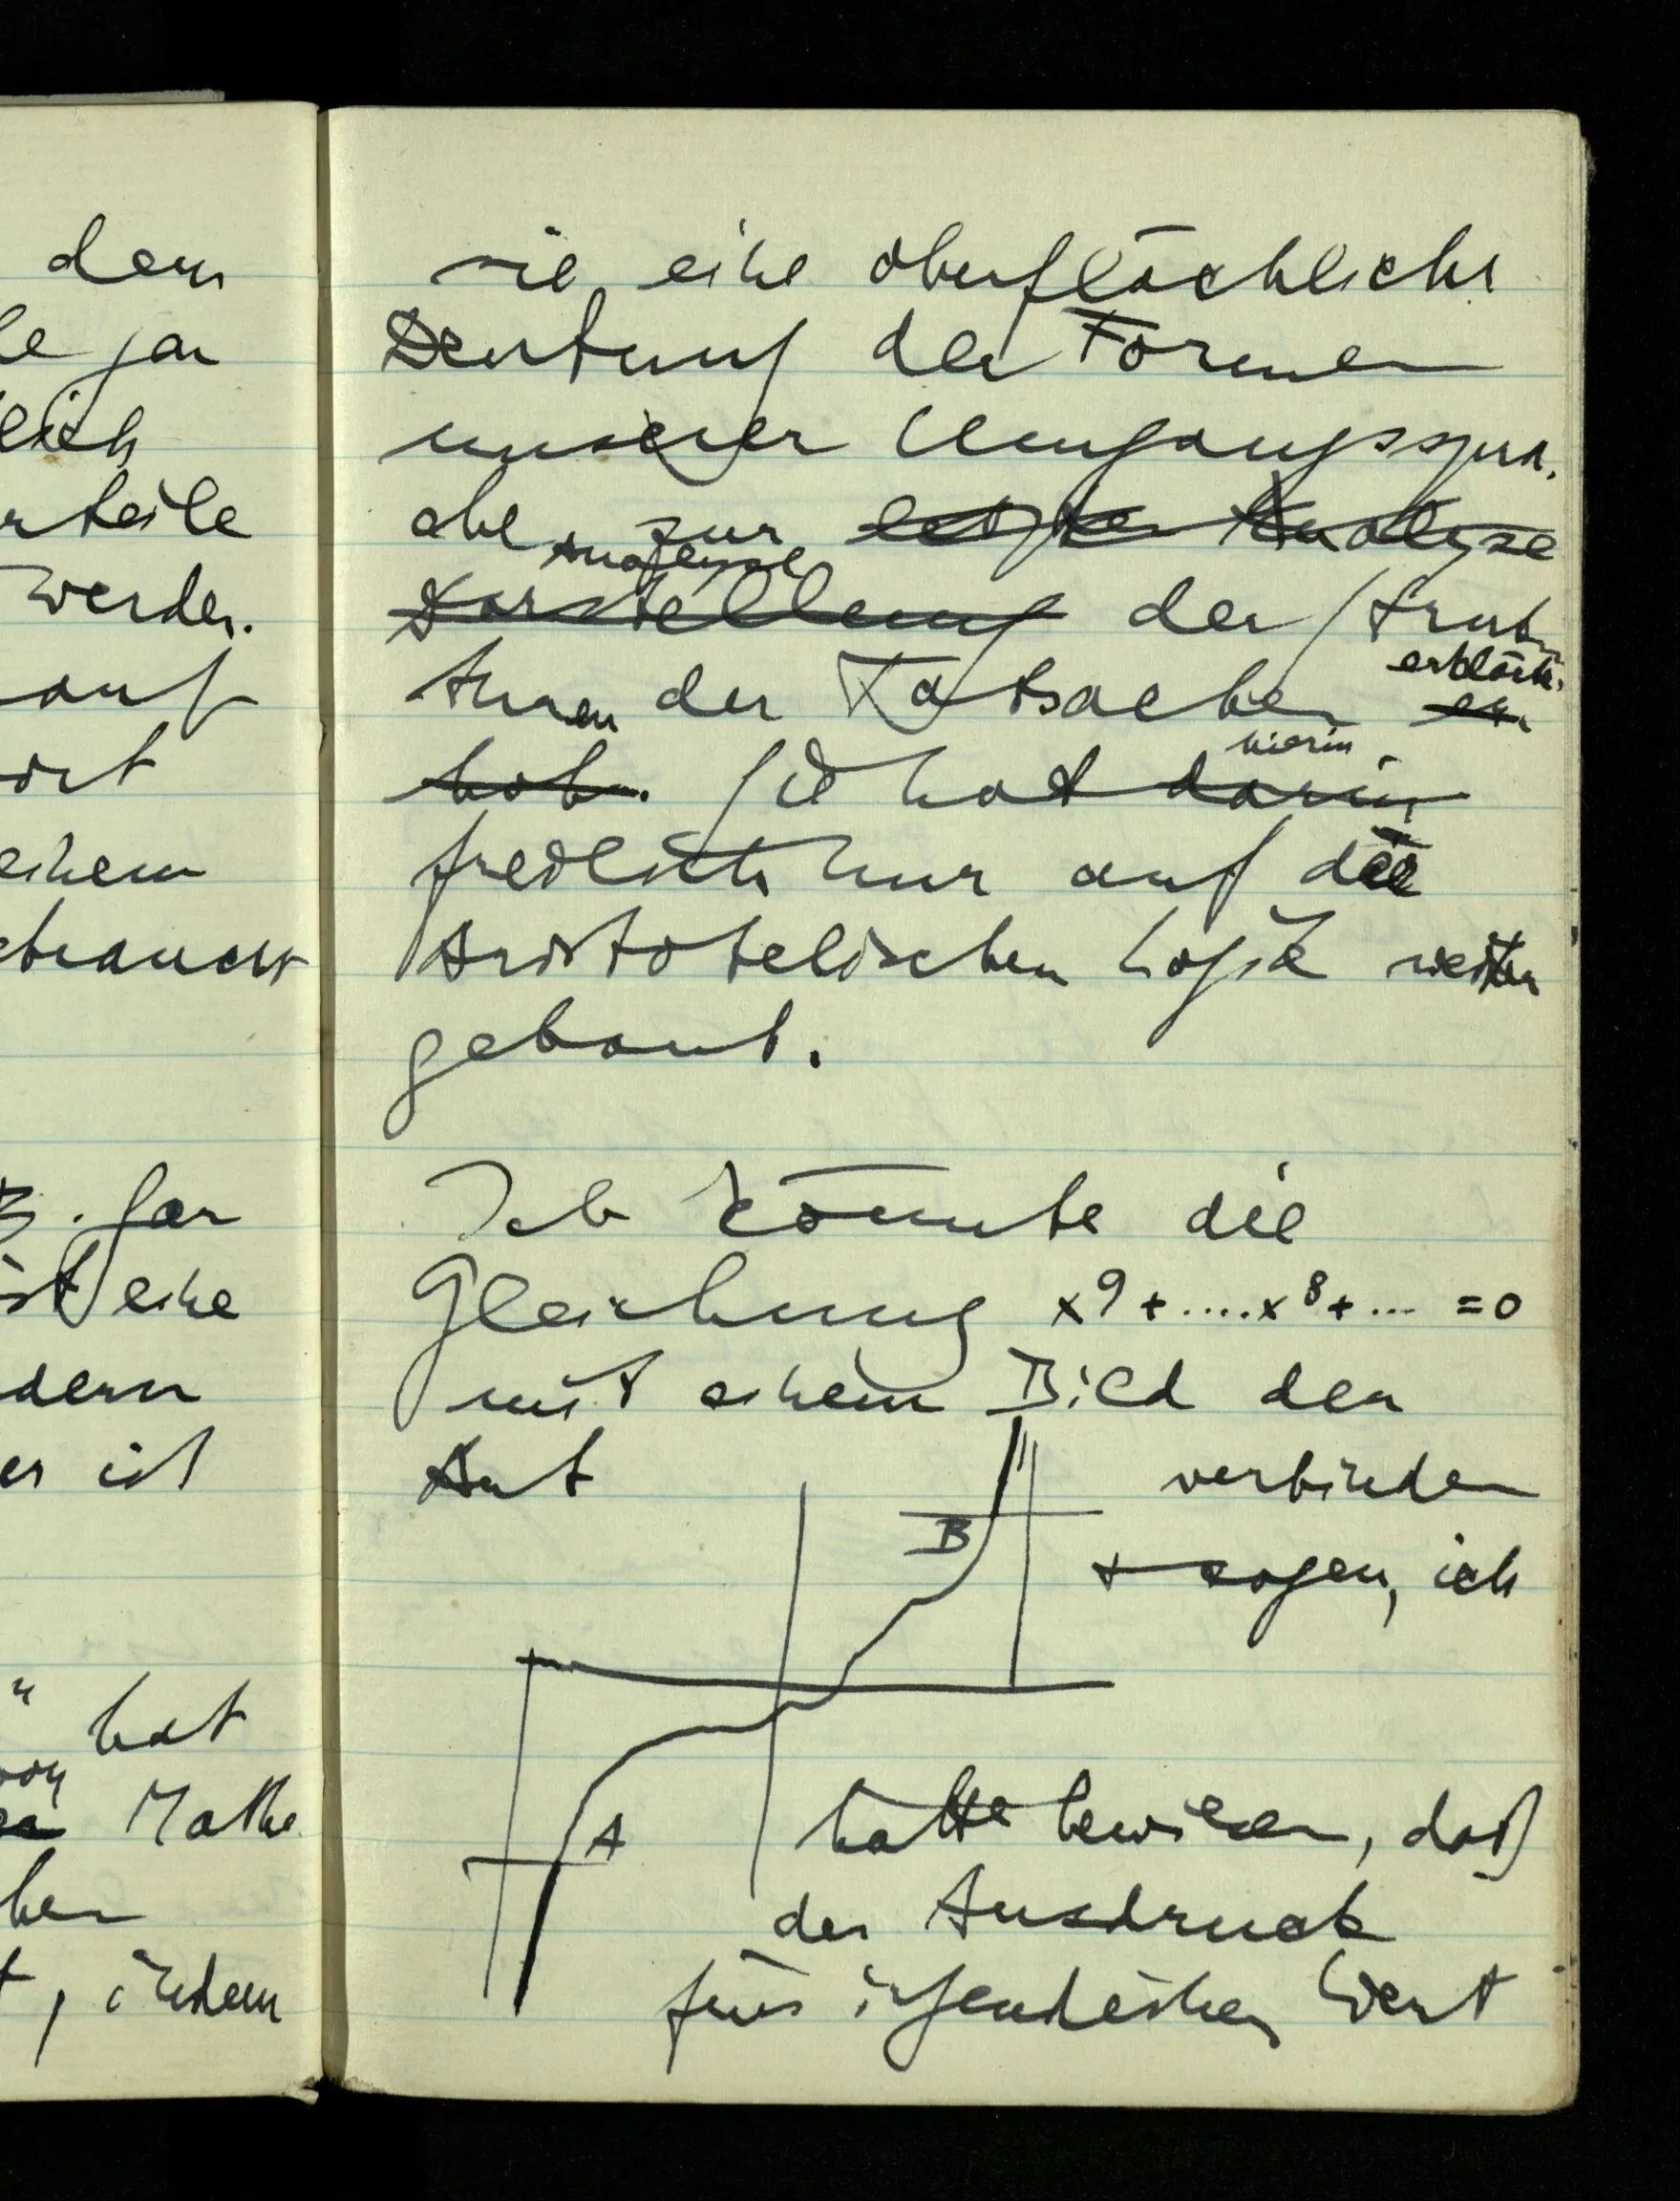 dem
le gar
lich
rteile
werden.
auf
ort
einem
ebraucht
B. gar
ist eine
dern
er ist
" hat
von
Mathe
hen
t, indem
sie eine oberflächliche
Deutung der Formen
unserer Umgangsspra-
che zur letzten Analyse
Analyse
Darstellung der Struk-
turen der Tatsachen er-
erklärte.
hob. Sie hat darin
hierin
freilich nur auf der
Aristotelischen Logik weiter
gebaut.
Ich könnte die
Gleichung x⁹+....x⁸+... =0
mit einem Bild der
Art verbinden
B
+ sagen, ich
A
hätte bewiesen, daß
der Ausdruck
für irgendeinen Wert